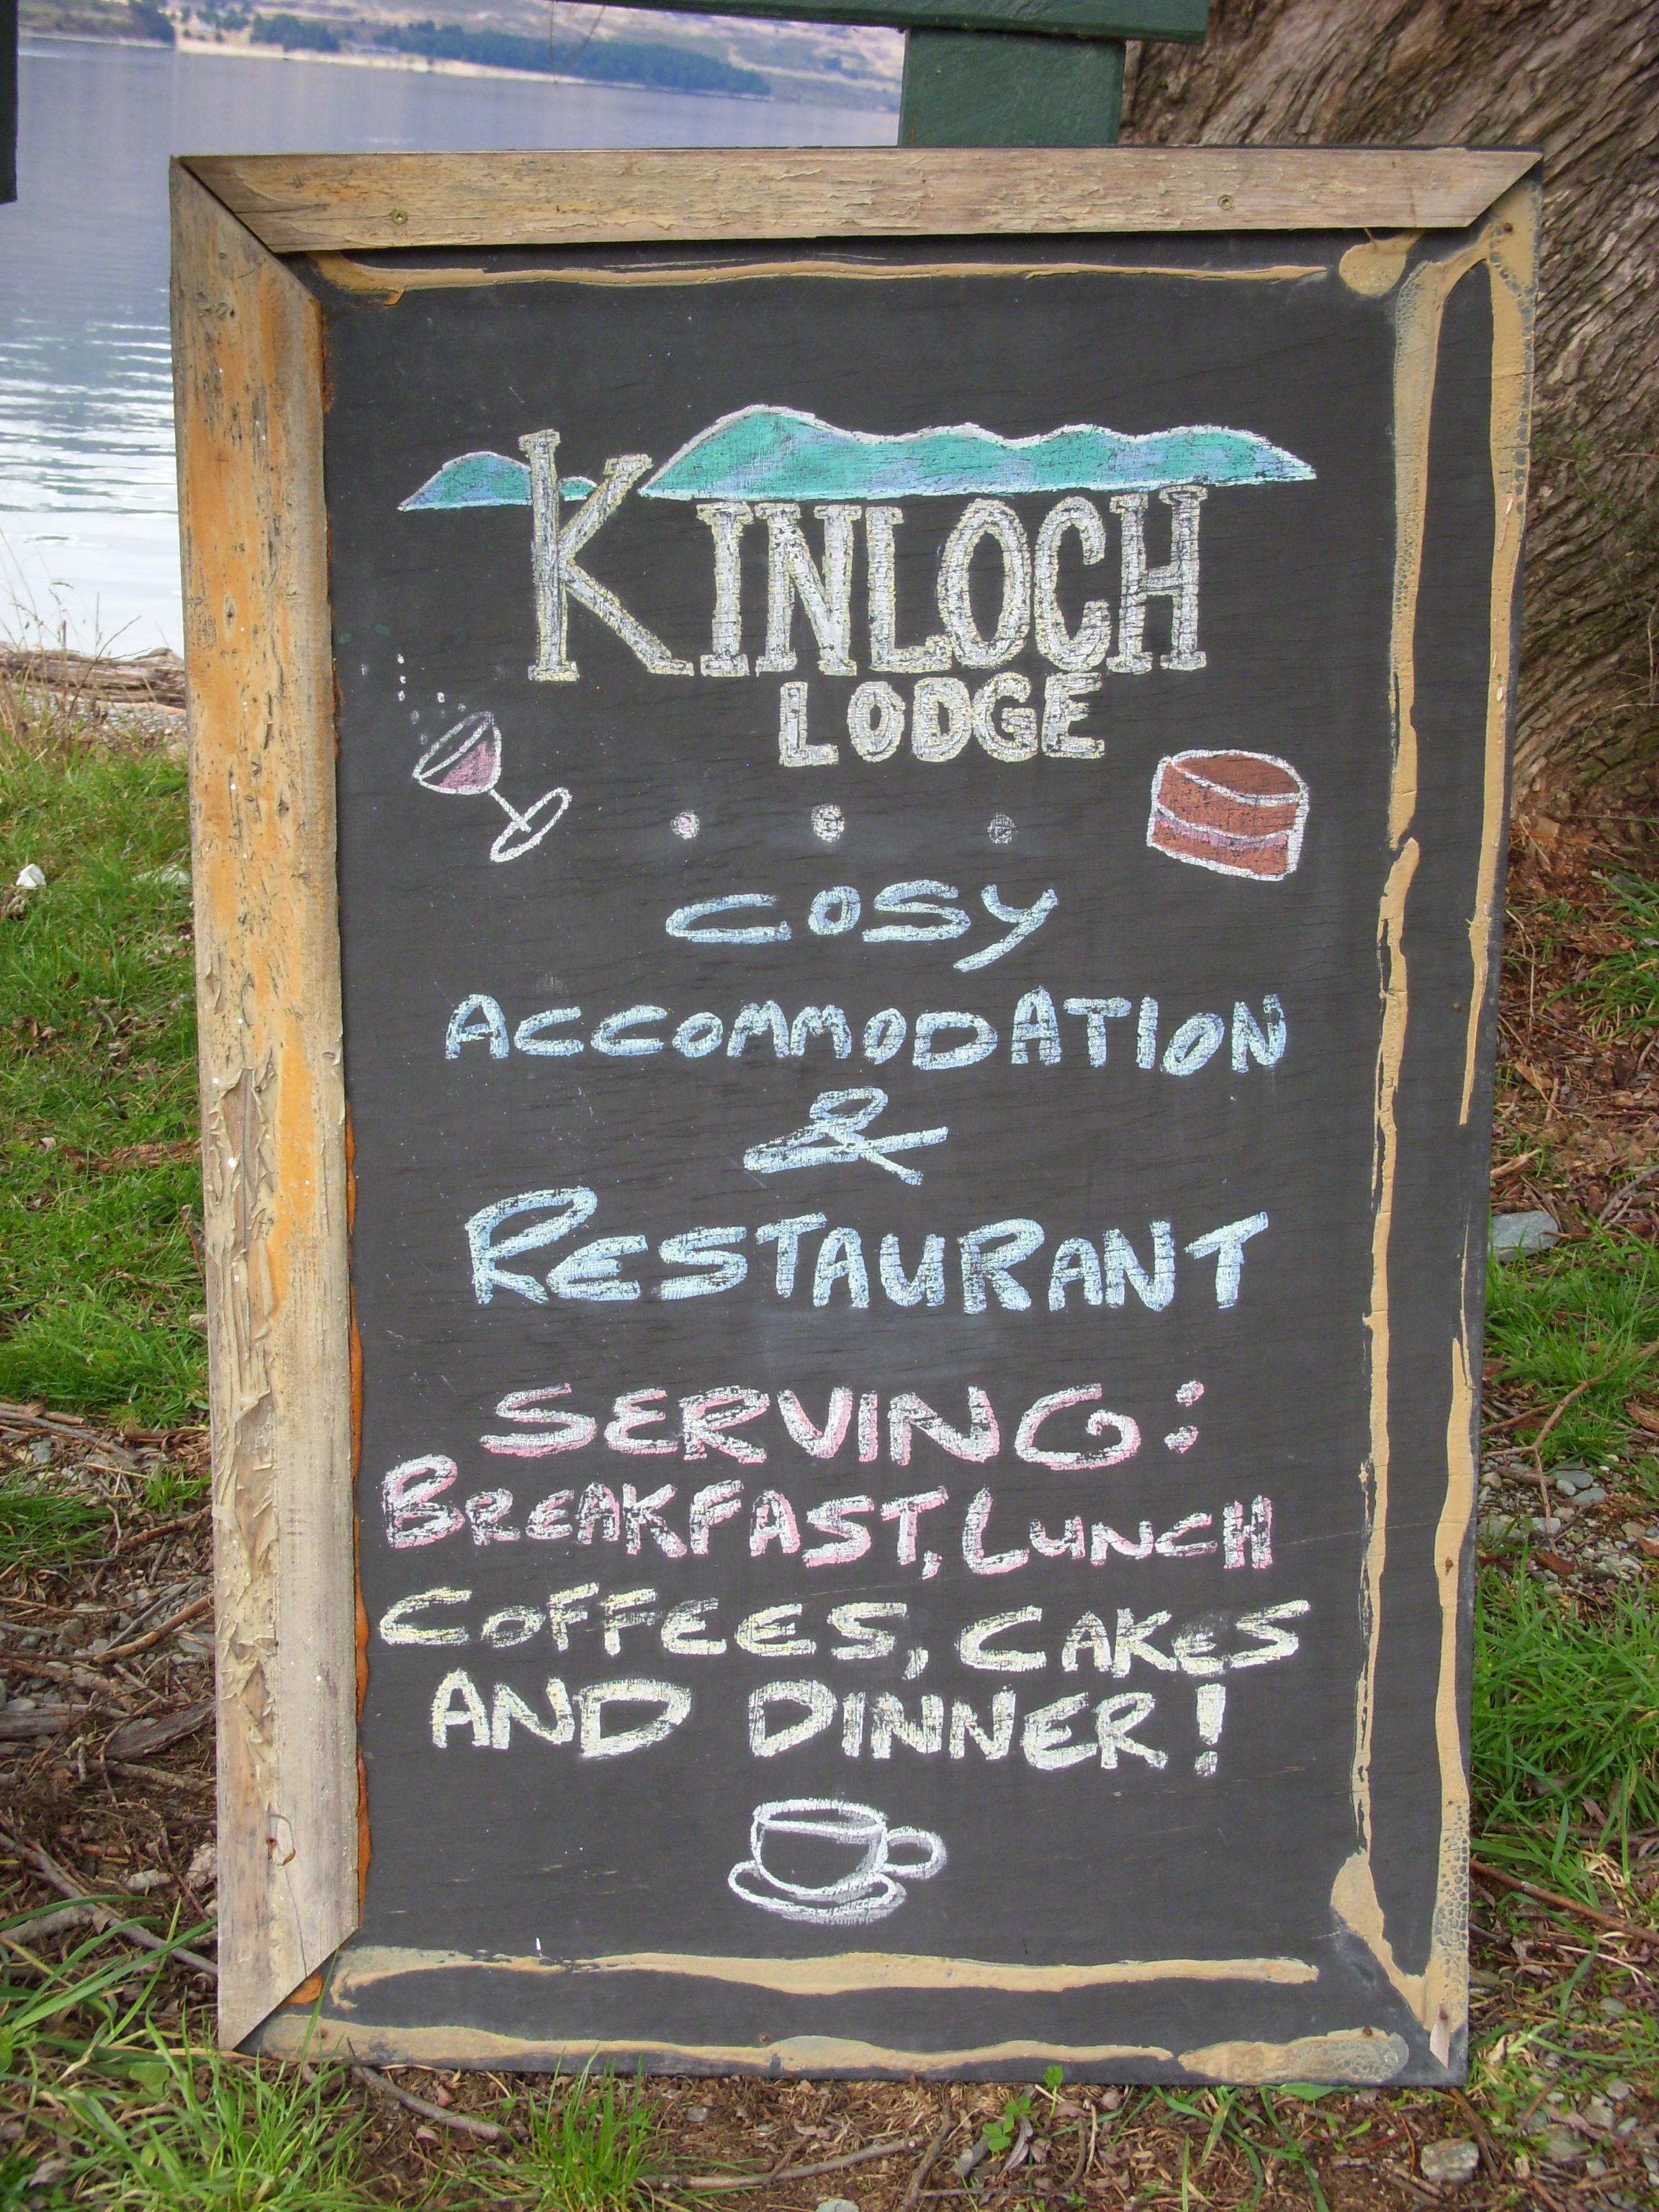 KINLOCH
LODGE
COSY
ACCOMMODATION
&
RESTAURANT
SERVING:
BREAKFAST, LUNCH
COFFEES, CAKES
AND DINNER!